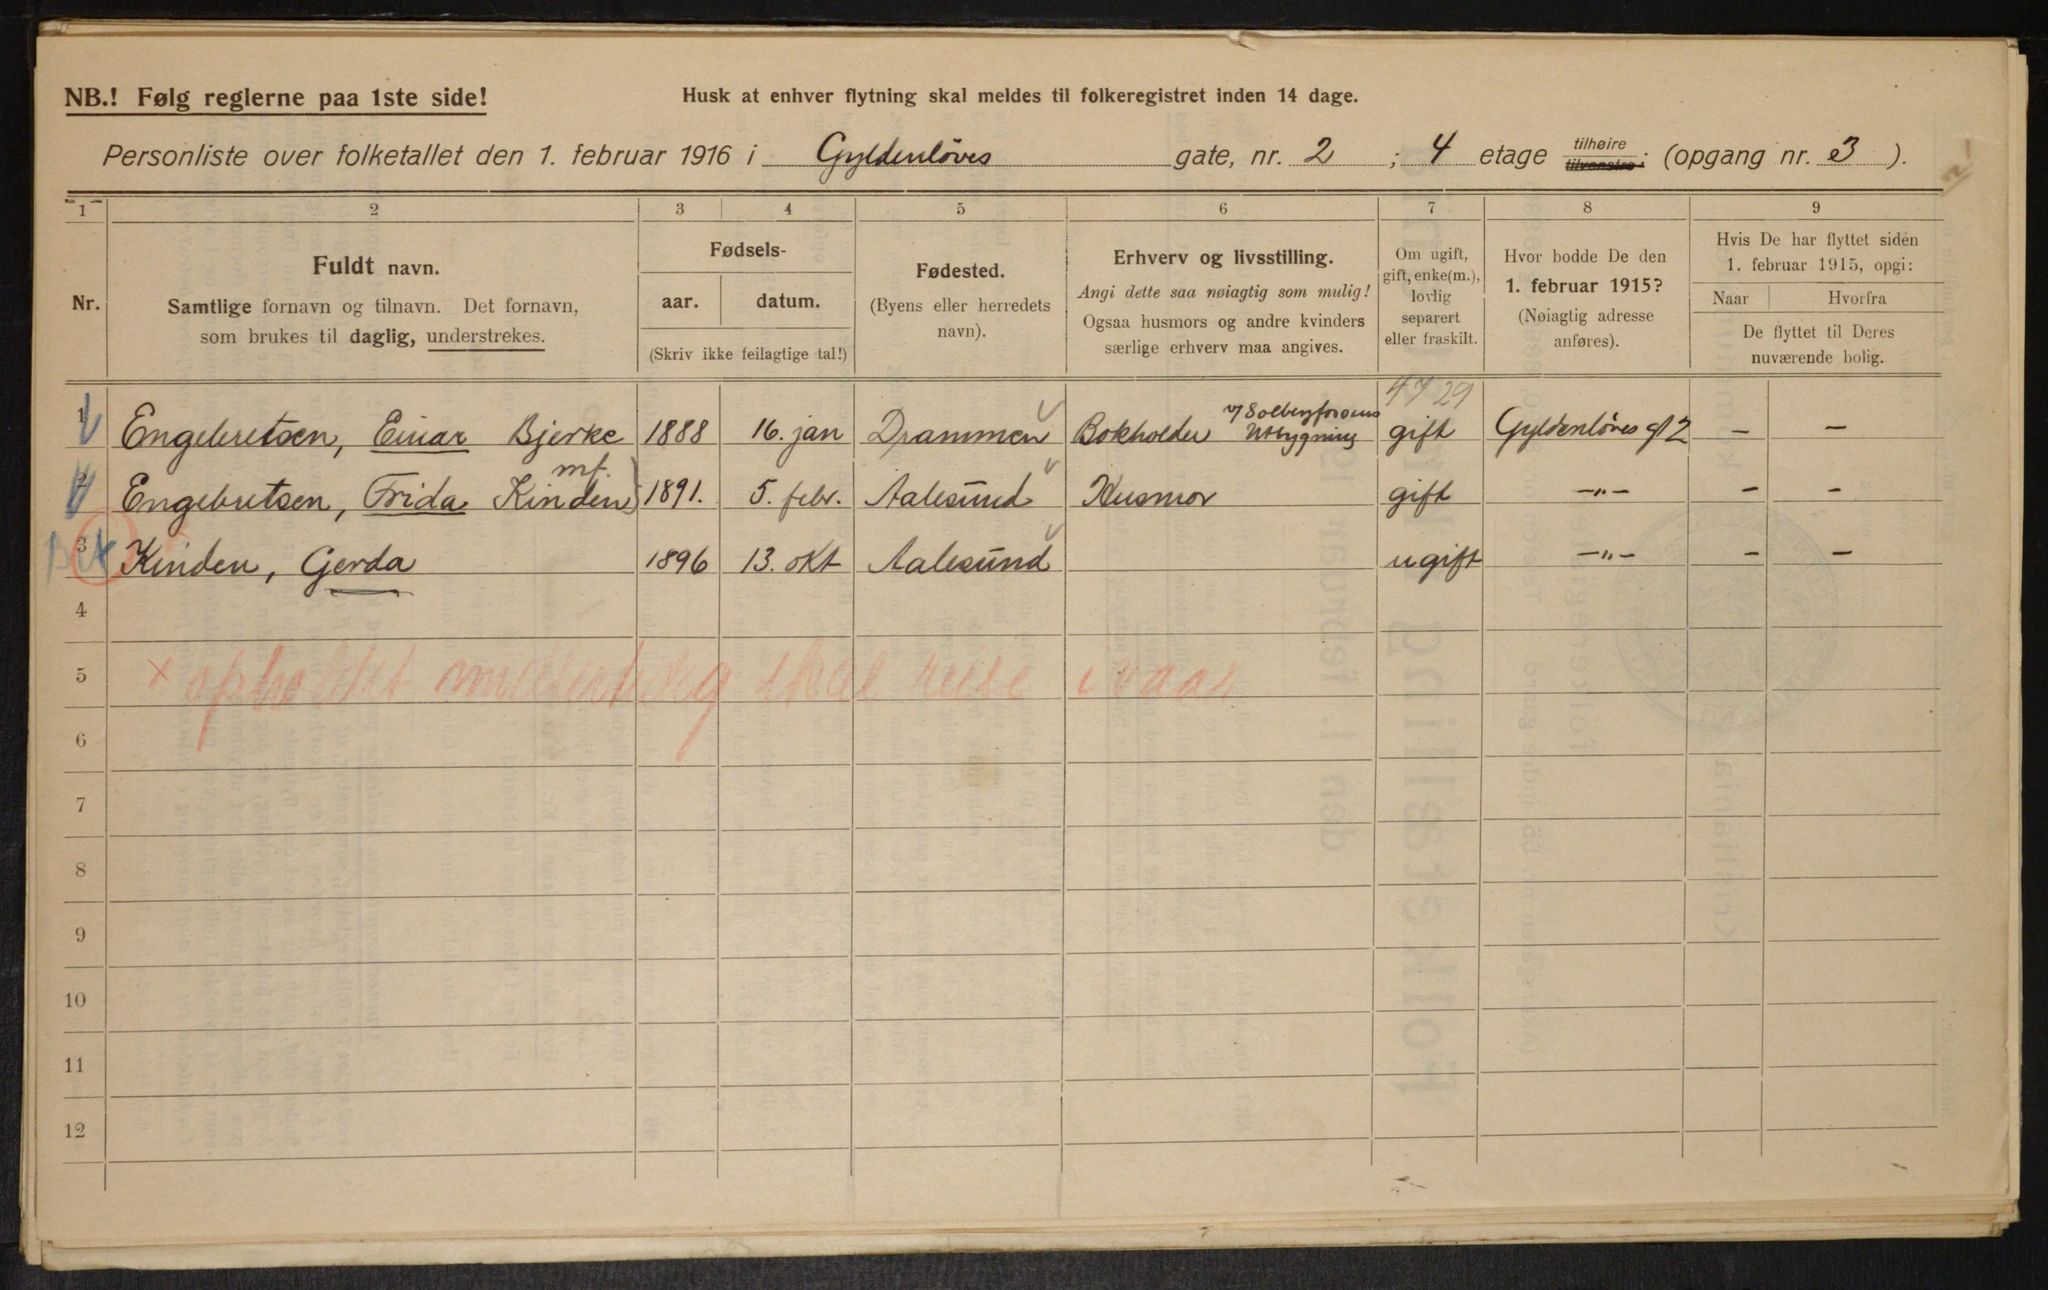 NB.! Følg reglerne paa 1ste side!
Husk at enhver flytning skal meldes til folkeregistret inden 14 dage.
Personliste over folketallet den 1. februar 1916 i Gyldenløves gate, nr. 2 ; 4 etage tilhøire tilvenstre (opgang nr. 3 ).
1 2 3 4 5 6 7 8 9
Nr.
Fuldt navn.
Samtlige fornavn og tilnavn. Det fornavn,
som brukes til daglig, understrekes.
Fødsels-
aar. datum.
(Skriv ikke feilagtige tal!)
Fødested.
(Byens eller herredets
navn).
Erhverv og livsstilling.
Angi dette saa nøiagtig som mulig!
Ogsaa husmors og andre kvinders
særlige erhverv maa angives.
Om ugift,
gift, enke(m.),
lovlig
separert
eller fraskilt.
Hvor bodde De den
1. februar 1915?
(Nøiagtig adresse
anføres).
Hvis De har flyttet siden
1. februar 1915, opgi:
Naar Hvorfra
De flyttet til Deres
nuværende bolig.
4729
1 Engebretsen, Einar Bjerke 1888 16. jan Drammen Bokholder v/ Solbergfossens Utbygning gift Gyldenløves gt 2 — —
mf.
2 Engebretsen, Frida Kinden 1891. 5. febr. Aalesund Husmor gift —„— — —
3 Kinden, Gerda 1896 13. okt Aalesund ugift —„— — —
4
5 x opholdet midlertidig skal reise i vaar
6
7
8
9
10
11
12